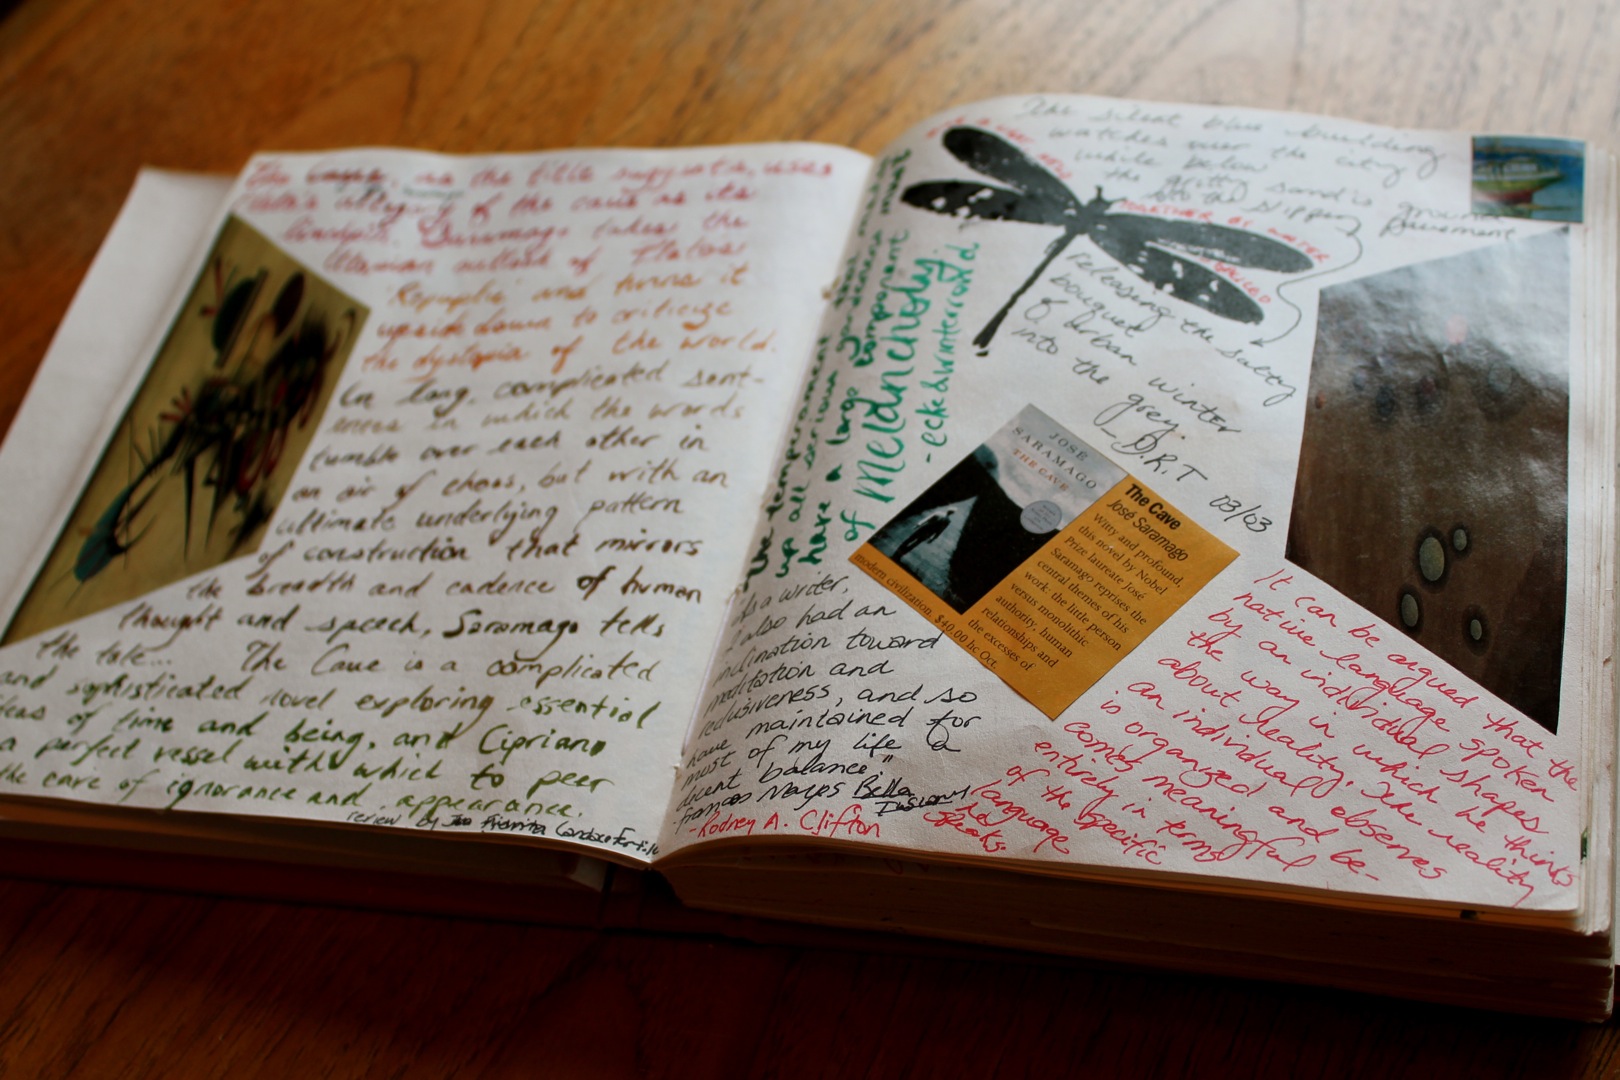 The Cave, as the title suggests, uses
Plato's allegory of the cave as its
linchpin. Saramago takes the
Utopian outlook of Plato's
'Republic' and turns it
upside down to criticize
the dystopia of the world.
In long, complicated sent-
ences in which the words
tumble over each other in
an air of chaos, but with an
ultimate underlying pattern
of construction that mirrors
the breadth and cadence of human
thought and speech, Saramago tells
the tale... The Cave is a complicated
and sophisticated novel exploring essential
ideas of time and being, and Cipriano
a perfect vessel with which to peer
the cave of ignorance and appearance.
review by
the temperament
up all serious
have a large component
of Melancholy
-eckdwinterrowd
As a writer,
I also had an
inclination toward
meditation and
reclusiveness, and so
have maintained for
most of my life a
decent balance"
-Frances Mayes Bella
The silent blue building
watches over the city
while below
the gritty sand is ground
into the slippery pavement
releasing the sultry
bouquet
of urban winter
into the grey.
-D.R.T 03/03
OF WATER
JOSÉ
SARAMAGO
THE CAVE
The Cave
José Saramago
Witty and profound,
this novel by Nobel
Prize laureate José
Saramago reprises the
central themes of his
work: the little person
versus monolithic
authority, human
relationships and
the excesses of
modern civilization. $40.00 hc Oct.
It can be argued that the
native language spoken
by an individual shapes
the way in which he thinks
about reality. The reality
an individual observes
is organized and be-
comes meaningful
entirely in terms
of the specific
language
he
speaks.
-Rodney A. Clifton